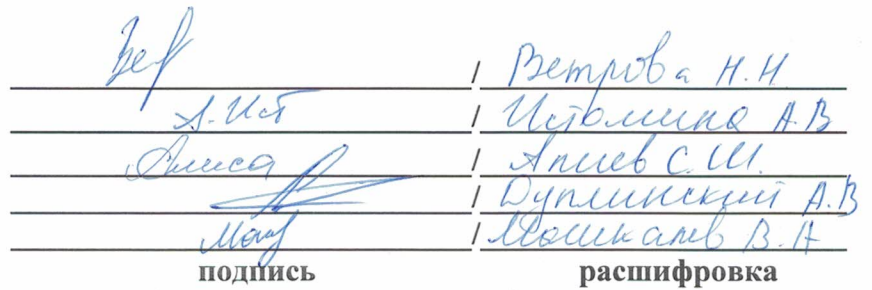 Вет / Ветрова Н.Н
А.Ист / Истомина А.В
Алиса / Алиев С.Ш.
/ Дуплинский А.В
Мош / Мошкалев В.А
подпись расшифровка